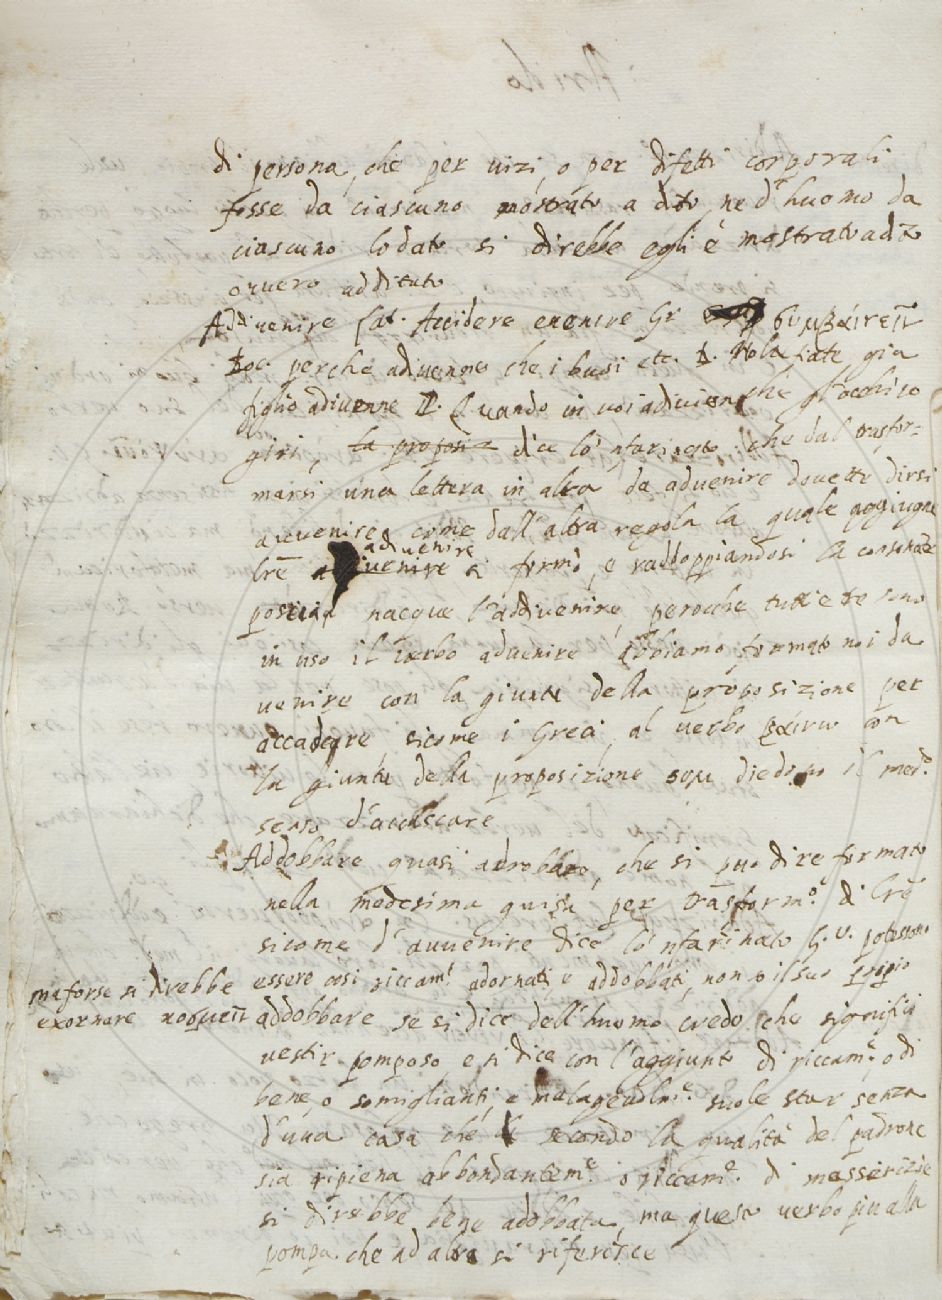 di persona, che per vizi, o per difetti corporali
fosse da ciascuno mostrato a dito, ne d'huomo da
ciascuno lodato si direbbe egli è mostrato a dito
ouuero additato
Adiuenire Lat. Accidere euenire Gr. συμβαίνειν
Boc. perche adiuenne che i buoi etc. D. Nola fate gia
figlio adiuenne P. Quando in uoi adiuien che gl'occhi io
giri, la proposiz dice lo 'nfarinato che dal trasfor=
marsi una lettera in altra da aduenire douette dirsi
auuenire, come dall'altra regola la quale aggiugne
lre adiuenire si formò, e raddoppiandosi la consonante
poscia nacque l'addiuenire, peroche tutt'e tre sono
in uso il uerbo aduenire abbiamo formato noi da
uenire con la giunta della proposizione per
accadere, sicome i Greci al uerbo βαίνω con
la giunta della proposizione συμ diedero il med.º
senso d'accadere
Addobbare quasi adrobbare, che si può dire formato
nella medesima guisa per trasform.º di lre
sicome d'auuenire dice lo 'nfarinato G. V. potessono
essere così riccam.º adornati e addobbati, non è il suo propio
ma forse si direbbe
exornare κοσμεῖν
addobbare se si dice dell'huomo credo che significhi
uestir pomposo, e si dice con l'aggiunto di riccam.e, o di
bene, o somiglianti, e malageuolm.e suole star senza
d'una casa che secondo la qualità del padrone
sia ripiena abbondantem.e o riccam.e di masserizie
si direbbe bene adobbata, ma questo uerbo più alla
pompa che ad altro si riferisce